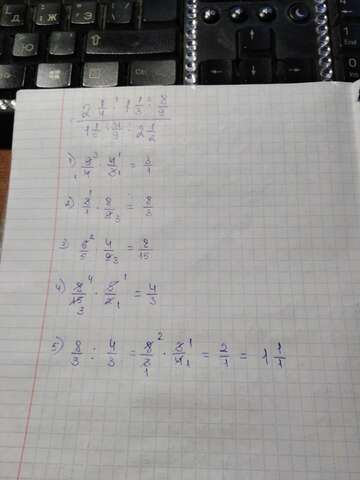 Д Ж Э
Ю
2 1/4 · 1 1/3 · 8/9
1 1/5 · 4/9 · 2 1/2
1) 9/4 · 4/3 = 3/1
2) 3/1 · 8/9 = 8/3
3) 6/5 · 4/9 = 8/15
4) 8/15 · 5/2 = 4/3
5) 8/3 : 4/3 = 8/3 · 3/4 = 2/1 = 1 1/1